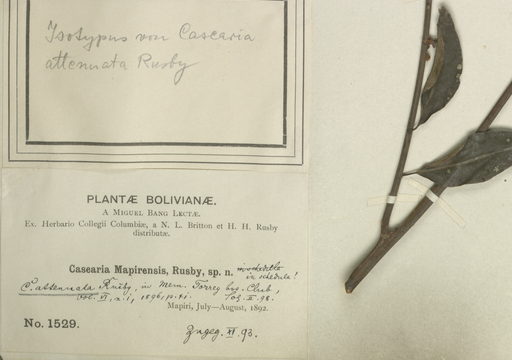 Isotypus von Casearia
attenuata Rusby
PLANTÆ BOLIVIANÆ.
A MIGUEL BANG LECTÆ.
Ex. Herbario Collegii Columbiæ, a N. L. Britton et H. H. Rusby
distributæ.
Casearia Mapirensis, Rusby, sp. n. in schedula
in schedula!
C. attenuata Rusby, in Mem. Torrey bot. Club,
vol. VI, n. 1, 1896, p.
Mapiri, July—August, 1892.
No. 1529.